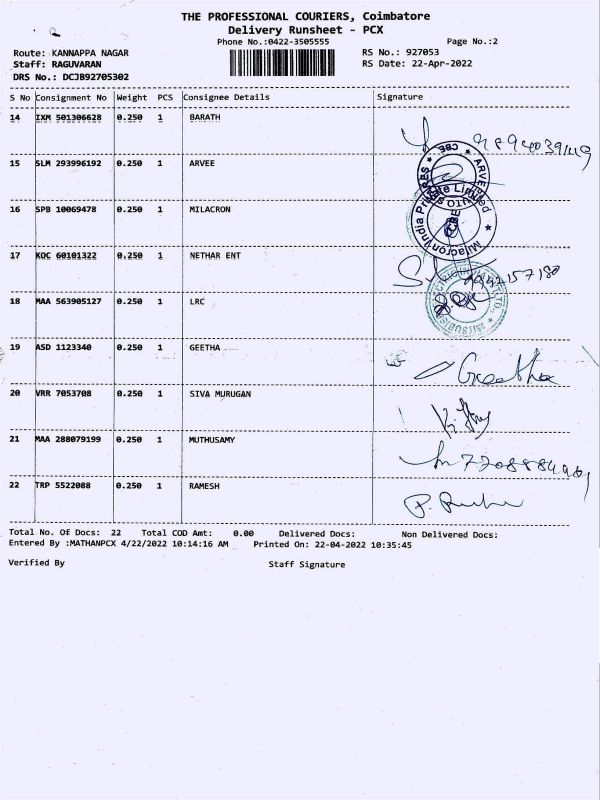 THE PROFESSIONAL COURIERS, Coimbatore
Delivery Runsheet - PCX
Phone No.:0422-3505555
Page No.:2
Route: KANNAPPA NAGAR
RS No.: 927053
Staff: RAGUVARAN
RS Date: 22-Apr-2022
DRS No.: DCJB92705302
S No Consignment No Weight PCS Consignee Details Signature
14 IXM 501306628 0.250 1 BARATH
15 SLM 293996192 0.250 1 ARVEE
CBE ARVE
16 SPB 10069478 0.250 1 MILACRON
Milacron India Private Limited CBE
17 KOC 60101322 0.250 1 NETHAR ENT
18 MAA 563905127 0.250 1 LRC
19 ASD 1123340 0.250 1 GEETHA
Geetha
20 VRR 7053708 0.250 1 SIVA MURUGAN
21 MAA 288079199 0.250 1 MUTHUSAMY
22 TRP 5522088 0.250 1 RAMESH
Total No. Of Docs: 22 Total COD Amt: 0.00 Delivered Docs: Non Delivered Docs:
Entered By :MATHANPCX 4/22/2022 10:14:16 AM Printed On: 22-04-2022 10:35:45
Verified By Staff Signature